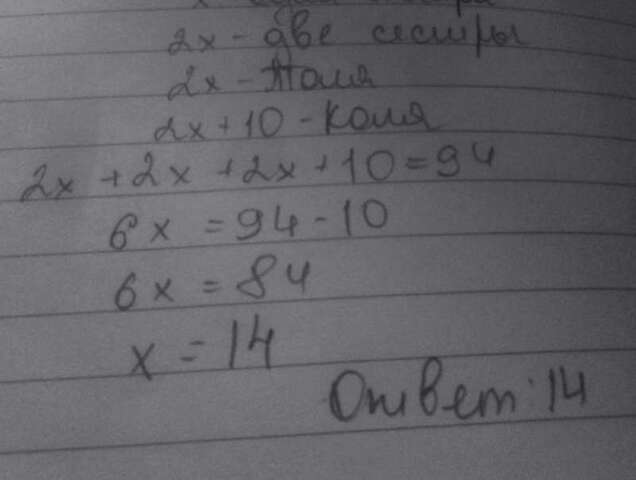 2x - две сестры
2x - Толя
2x + 10 - Коля
2x + 2x + 2x + 10 = 94
6x = 94 - 10
6x = 84
x = 14
Ответ: 14